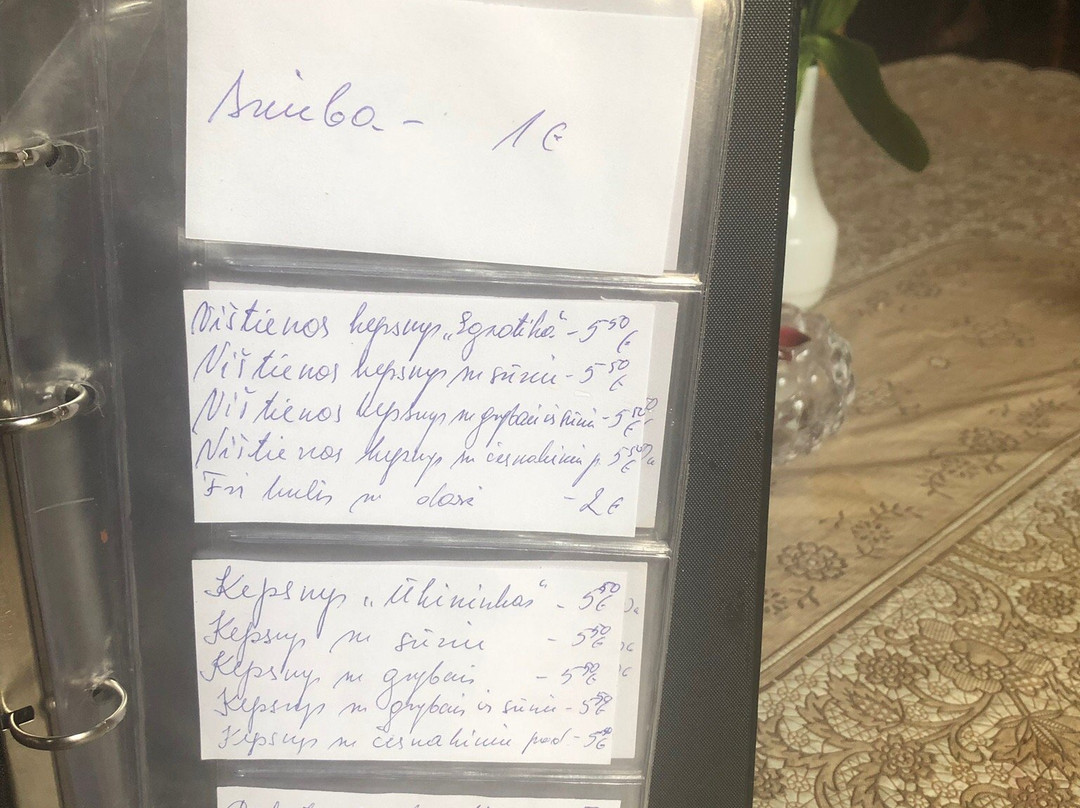 1 €
Vištienos kepsnys „Egzotika" - 5⁵⁰ €
Vištienos kepsnys su sūriu - 5⁵⁰ €
Vištienos kepsnys su grybais ir sūriu - 5⁵⁰ €
Vištienos kepsnys su česnakiniu p. 5⁵⁰ €
Fri bulv su daž - 2 €
Kepsnys „Ūkininkas" - 5⁵⁰ €
Kepsnys su sūriu - 5⁵⁰ €
Kepsnys su grybais - 5⁵⁰ €
Kepsnys su grybais ir sūriu - 5⁵⁰ €
Kepsnys su česnakiniu pad - 5⁵⁰ €